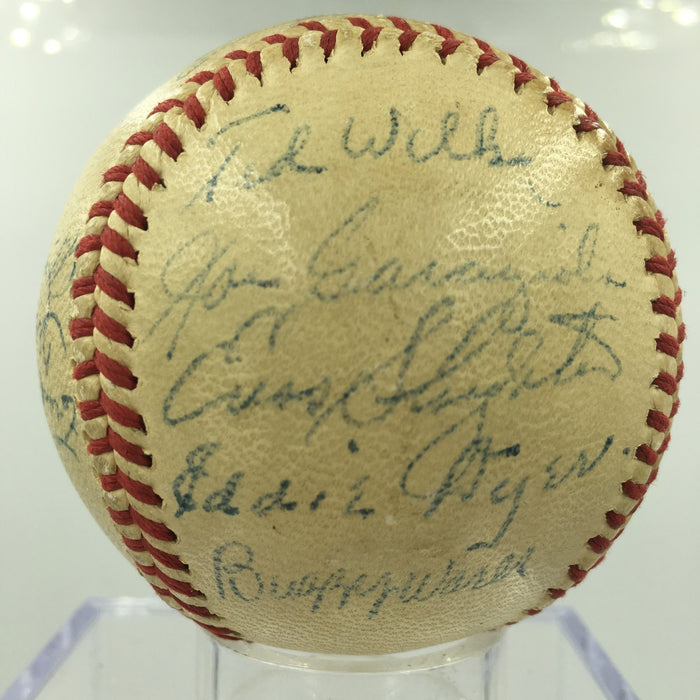 Ted Wilks
Joe Garagiola
Enos Slaughter
Eddie Dyer
Buzzy Wares